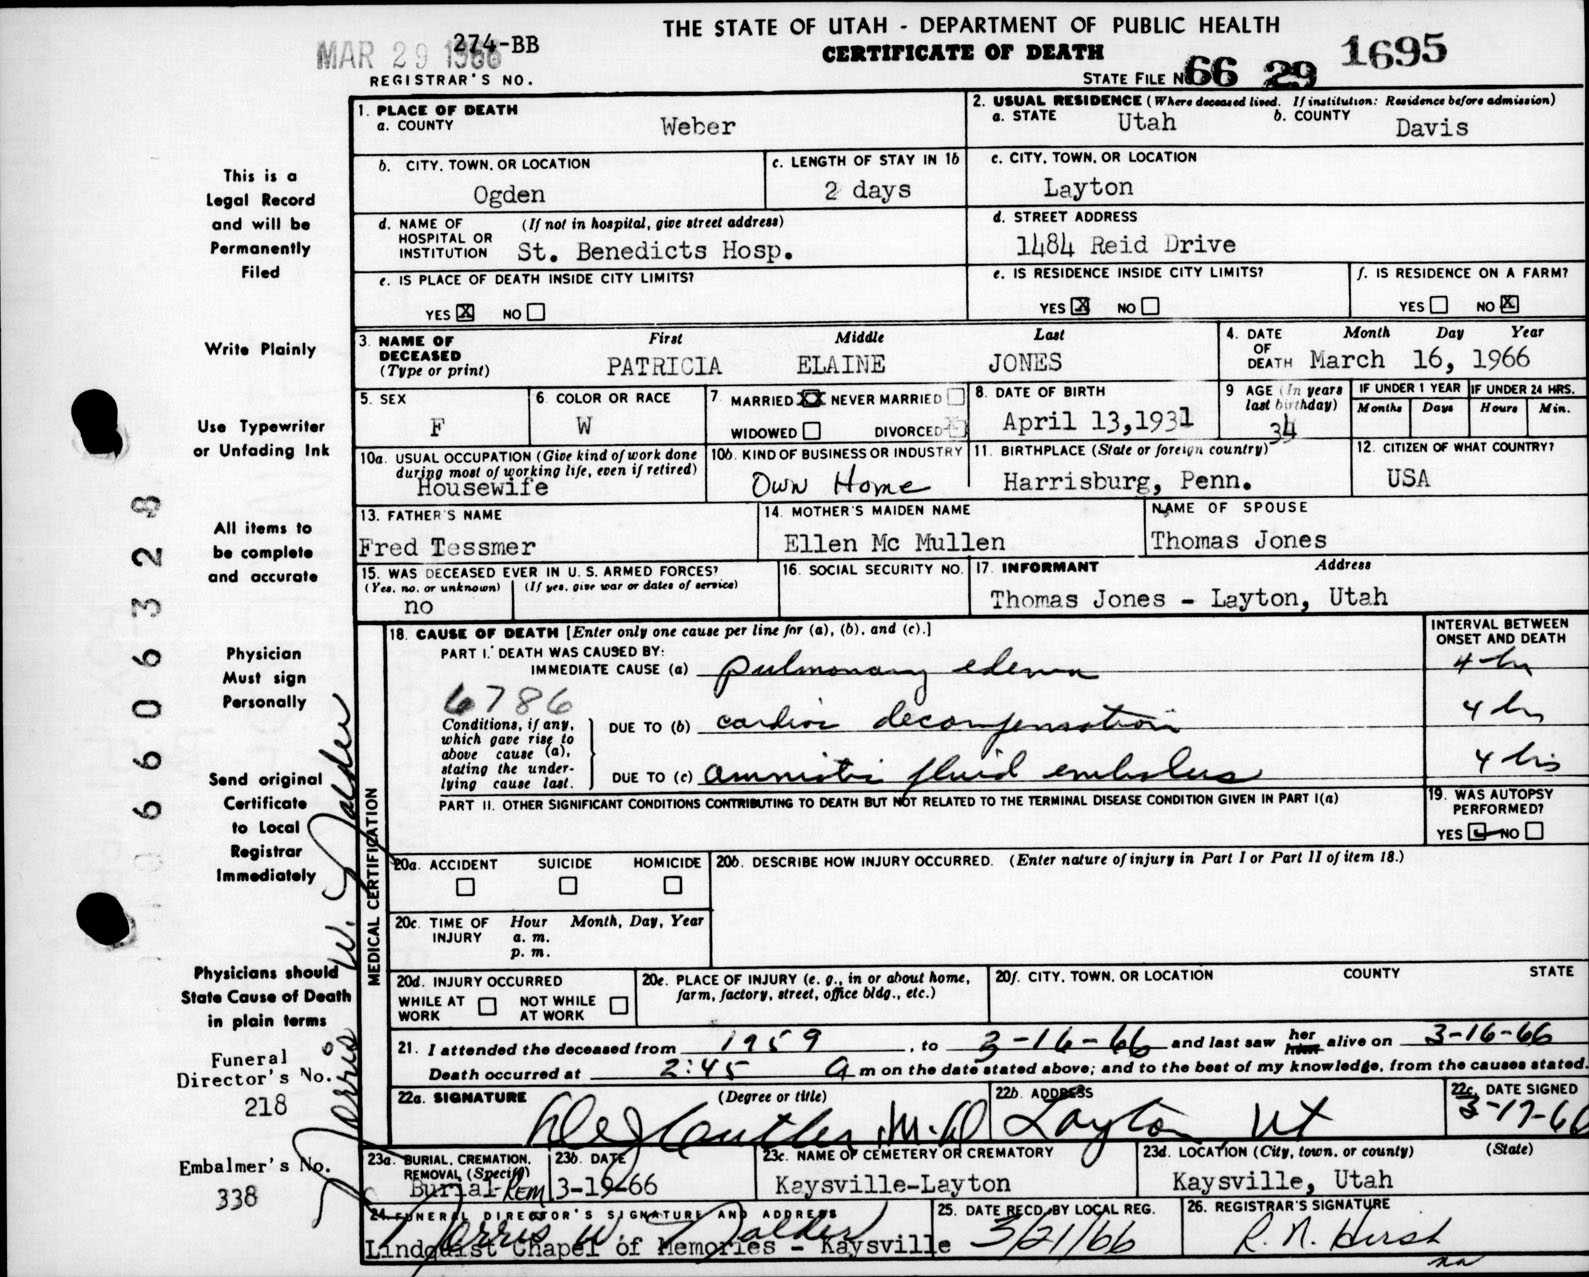 THE STATE OF UTAH - DEPARTMENT OF PUBLIC HEALTH
CERTIFICATE OF DEATH
MAR 29 1966
274-BB
REGISTRAR'S NO.
STATE FILE No 66 29 1695
This is a
Legal Record
and will be
Permanently
Filed
Write Plainly
Use Typewriter
or Unfading Ink
All items to
be complete
and accurate
Physician
Must sign
Personally
Send original
Certificate
to Local
Registrar
Immediately
Physicians should
State Cause of Death
in plain terms
Funeral
Director's No.
218
Embalmer's No.
338
66063 28
Norris W. Nalder
1. PLACE OF DEATH
a. COUNTY
Weber
2. USUAL RESIDENCE (Where deceased lived. If institution: Residence before admission)
a. STATE Utah b. COUNTY Davis
b. CITY, TOWN, OR LOCATION
Ogden
c. LENGTH OF STAY IN 1b
2 days
c. CITY, TOWN, OR LOCATION
Layton
d. NAME OF HOSPITAL OR INSTITUTION (If not in hospital, give street address)
St. Benedicts Hosp.
d. STREET ADDRESS
1484 Reid Drive
e. IS PLACE OF DEATH INSIDE CITY LIMITS?
YES X NO
e. IS RESIDENCE INSIDE CITY LIMITS?
YES X NO
f. IS RESIDENCE ON A FARM?
YES NO X
3. NAME OF DECEASED (Type or print)
First Middle Last
PATRICIA ELAINE JONES
4. DATE OF DEATH
Month Day Year
March 16, 1966
5. SEX
F
6. COLOR OR RACE
W
7. MARRIED X NEVER MARRIED
WIDOWED DIVORCED
8. DATE OF BIRTH
April 13,1931
9 AGE (In years last birthday)
34
IF UNDER 1 YEAR
Months Days
IF UNDER 24 HRS.
Hours Min.
10a. USUAL OCCUPATION (Give kind of work done during most of working life, even if retired)
Housewife
10b. KIND OF BUSINESS OR INDUSTRY
Own Home
11. BIRTHPLACE (State or foreign country)
Harrisburg, Penn.
12. CITIZEN OF WHAT COUNTRY?
USA
13. FATHER'S NAME
Fred Tessmer
14. MOTHER'S MAIDEN NAME
Ellen Mc Mullen
NAME OF SPOUSE
Thomas Jones
15. WAS DECEASED EVER IN U. S. ARMED FORCES?
(Yes, no, or unknown) (If yes, give war or dates of service)
no
16. SOCIAL SECURITY NO.
17. INFORMANT Address
Thomas Jones - Layton, Utah
MEDICAL CERTIFICATION
18. CAUSE OF DEATH [Enter only one cause per line for (a), (b), and (c).]
INTERVAL BETWEEN ONSET AND DEATH
PART I. DEATH WAS CAUSED BY:
IMMEDIATE CAUSE (a) pulmonary edema 4 hr
6786
Conditions, if any, which gave rise to above cause (a), stating the underlying cause last.
DUE TO (b) cardiac decompensation 4 hr
DUE TO (c) amniotic fluid embolus 4 hrs
PART II. OTHER SIGNIFICANT CONDITIONS CONTRIBUTING TO DEATH BUT NOT RELATED TO THE TERMINAL DISEASE CONDITION GIVEN IN PART I(a)
19. WAS AUTOPSY PERFORMED?
YES NO
20a. ACCIDENT SUICIDE HOMICIDE
20b. DESCRIBE HOW INJURY OCCURRED. (Enter nature of injury in Part I or Part II of item 18.)
20c. TIME OF INJURY Hour Month, Day, Year
a. m.
p. m.
20d. INJURY OCCURRED
WHILE AT WORK NOT WHILE AT WORK
20e. PLACE OF INJURY (e. g., in or about home, farm, factory, street, office bldg., etc.)
20f. CITY, TOWN, OR LOCATION COUNTY STATE
21. I attended the deceased from 1959, to 3-16-66 and last saw her him alive on 3-16-66
Death occurred at 2:45 a m on the date stated above; and to the best of my knowledge, from the causes stated.
22a. SIGNATURE (Degree or title)
Cutler, M.D
22b. ADDRESS
Layton Ut
22c. DATE SIGNED
3-17-66
23a. BURIAL, CREMATION, REMOVAL (Specify)
Burial-Rem
23b. DATE
3-19-66
23c. NAME OF CEMETERY OR CREMATORY
Kaysville-Layton
23d. LOCATION (City, town, or county) (State)
Kaysville, Utah
24. FUNERAL DIRECTOR'S SIGNATURE AND ADDRESS
Norris W. Nalder
Lindquist Chapel of Memories - Kaysville
25. DATE RECD. BY LOCAL REG.
3/21/66
26. REGISTRAR'S SIGNATURE
R. N. Hirst
na